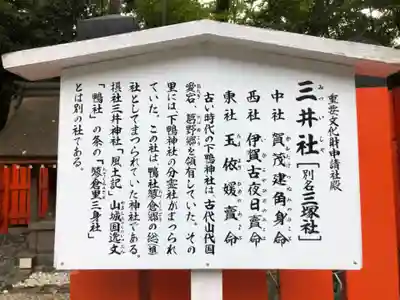 重要文化財申請社殿
三井社［別名三塚社］
中社 賀茂建角身命
西社 伊賀古夜日賣命
東社 玉依媛賣命
古い時代の下鴨神社は、古代山代国
愛宕、葛野郷を領有していた。その
里には下鴨神社の分霊社がまつられ
ていた。この社は、鴨社蓼倉郷の総祖
社としてまつられていた神社である。
摂社三井神社「風土記」山城国逸文
「鴨社」の条の「蓼倉里三身社」
とは別の社である。